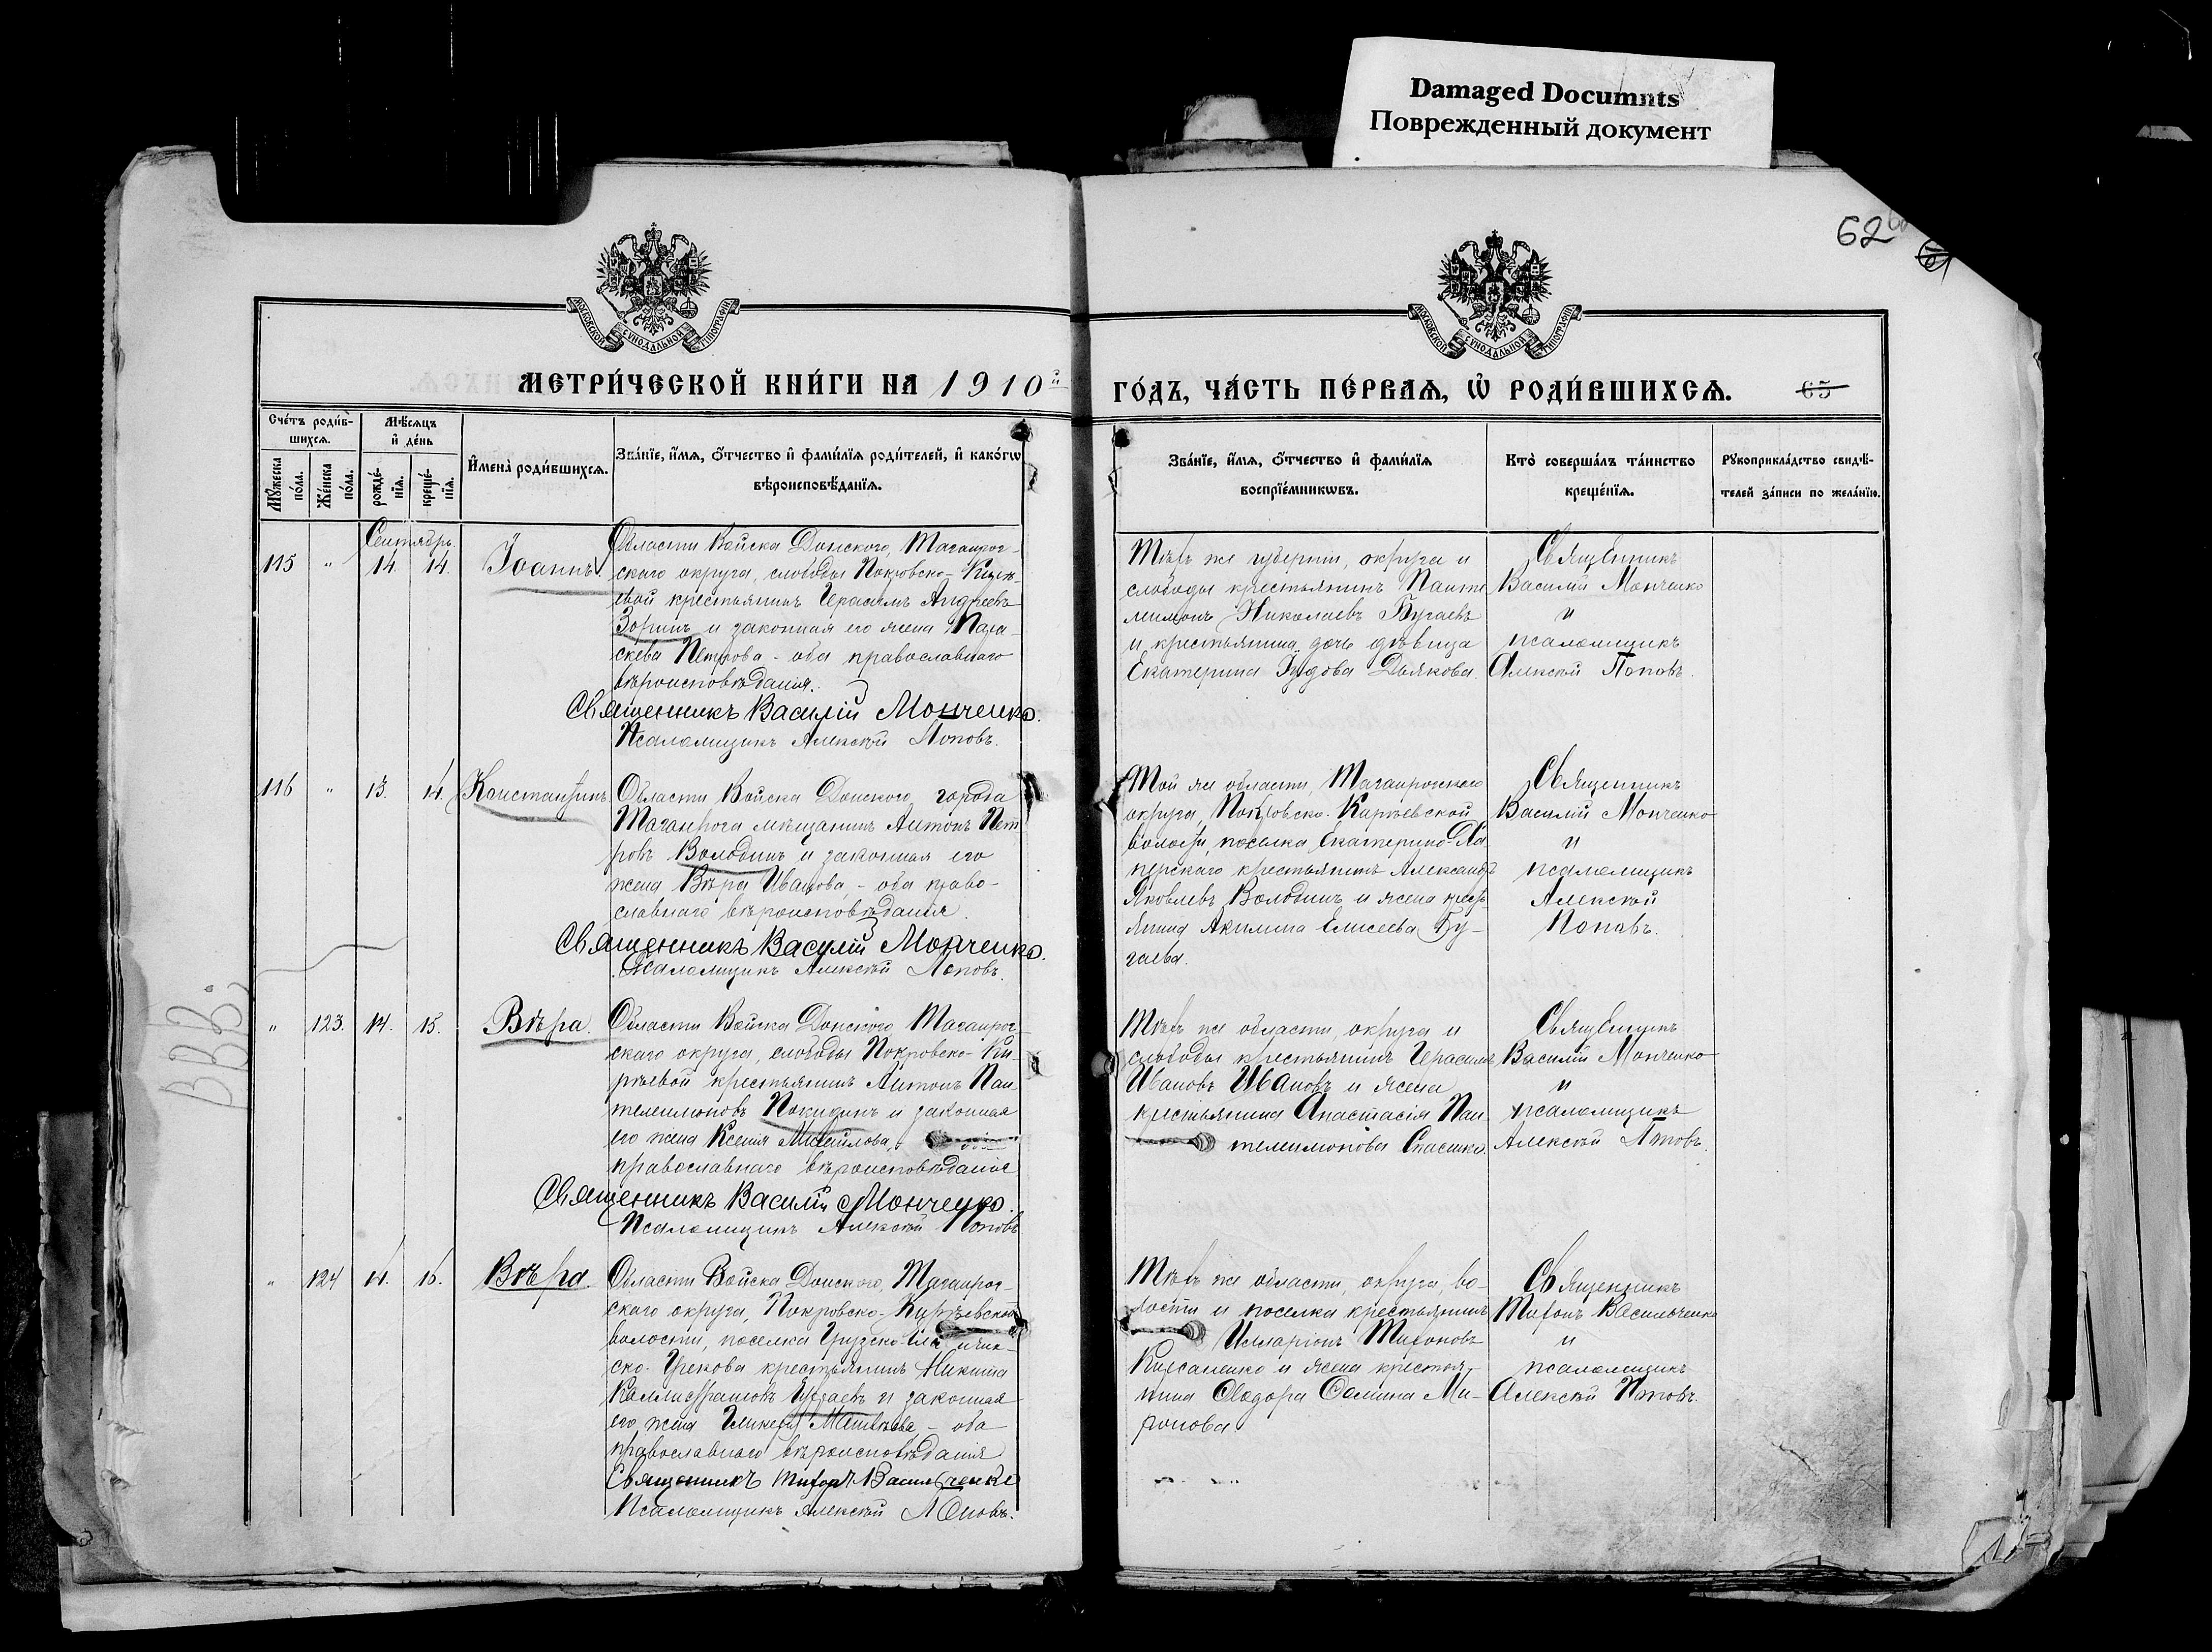 Damaged Documnts
Поврежденный документ
62
61
МОСКОВСКОЙ СѴНОДАЛЬНОЙ ТИПОГРАФІИ
МОСКОВСКОЙ СѴНОДАЛЬНОЙ ТИПОГРАФІИ
МЕТРИ́ЧЕСКОЙ КНИ́ГИ НА 1910й
ГО́ДЪ, ЧА́СТЬ ПЕ́РВАѦ, Ѡ҆ РОДИ́ВШИХСѦ.
65
Сче́тъ роди́в-
шихсѧ.
Мѣ́сѧцъ
и҆ де́нь
Мꙋ́жеска
по́ла.
Же́нска
по́ла.
рожде́-
нїѧ.
креще́-
нїѧ.
И҆мена̀ роди́вшихсѧ.
Зва́нїе, и҆́мѧ, ѻ҆́тчество и҆ фамилїѧ роди́телей, и҆ како́гѡ
вѣроисповѣ́данїѧ.
Зва́нїе, и҆́мѧ, ѻ҆́тчество и҆ фами́лїѧ
воспрїе́мникѡвъ.
Кто̀ соверша́лъ та́инство
креще́нїѧ.
Рꙋкоприкла́дство свидѣ́-
телей за́писи по жела́нїю.
Сентябрь
115 " 14. 14. Іоаннъ.
Области Войска Донского, Таганрог-
скаго округа, слободы Покровско-Кирѣ-
евой крестьянинъ Герасимъ Андреевъ
Зоринъ и законная его жена Пара-
скева Петрова - оба православнаго
вѣроисповѣданія.
Священникъ Василій Мончечко.
Псаломщикъ Алексѣй Поповъ.
Тѣхъ же губерніи, округа и
слободы крестьянинъ Панте
лимонъ Николаевъ Бугаевъ
и крестьянина дочь дѣвица
Екатерина Дьякова.
Священникъ
Василій Мончечко
и
псаломщикъ
Алексѣй Поповъ.
116 " 13. 14. Константинъ
Области Войска Донского города
Таганрога мѣщанинъ Антонъ Пет
ровъ Володинъ и законная его
жена Вѣра Иванова, - оба право-
славнаго вѣроисповѣданія.
Священникъ Василій Мончечко.
Псаломщикъ Алексѣй Поповъ.
Той же области, Таганрогскаго
округа, Покровско-Кирѣевской
волости, поселка Екатерино-Ха
перскаго крестьянинъ Александръ
Яковлевъ Володинъ и жена кресть-
янина Акилина Елисеева Бу-
гаева.
Священникъ
Василій Мончечко
и
псаломщикъ
Алексѣй
Поповъ.
ВВВ.
" 123. 14. 15. Вѣра.
Области Войска Донского, Таганрог-
скаго округа, слободы Покровско-Ки-
рѣевой крестьянинъ Антонъ Пан
телеимоновъ и законная
его жена Ксенія Михайлова, - оба
православнаго вѣроисповѣданія
Священникъ Василій Мончечко.
Псаломщикъ Алексѣй Поповъ
Тѣхъ же области, округа и
слободы крестьянинъ Герасимъ
Ивановъ Ивановъ и жена
крестьянина Анастасія Пан
телеимонова Спасенко.
Священникъ
Василій Мончечко
и
псаломщикъ
Алексѣй Поповъ.
" 124 14. 16. Вѣра.
Области Войска Донского, Таганрог-
скаго округа, Покровско-Кирѣевской
волости, поселка Грузско-
ско-Грекова крестьянинъ Никита
Каллистратовъ и законная
его жена Гликерія Матвѣева - оба
православнаго вѣроисповѣданія
Священникъ Тихонъ Васильченко
Псаломщикъ Алексѣй Поповъ.
Тѣхъ же области, округа, во-
лости и поселка крестьянинъ
Илларіонъ Тихоновъ
и жена крестья-
нина Ми-
ронова
Священникъ
Тихонъ Васильченко
и
псаломщикъ
Алексѣй Поповъ.